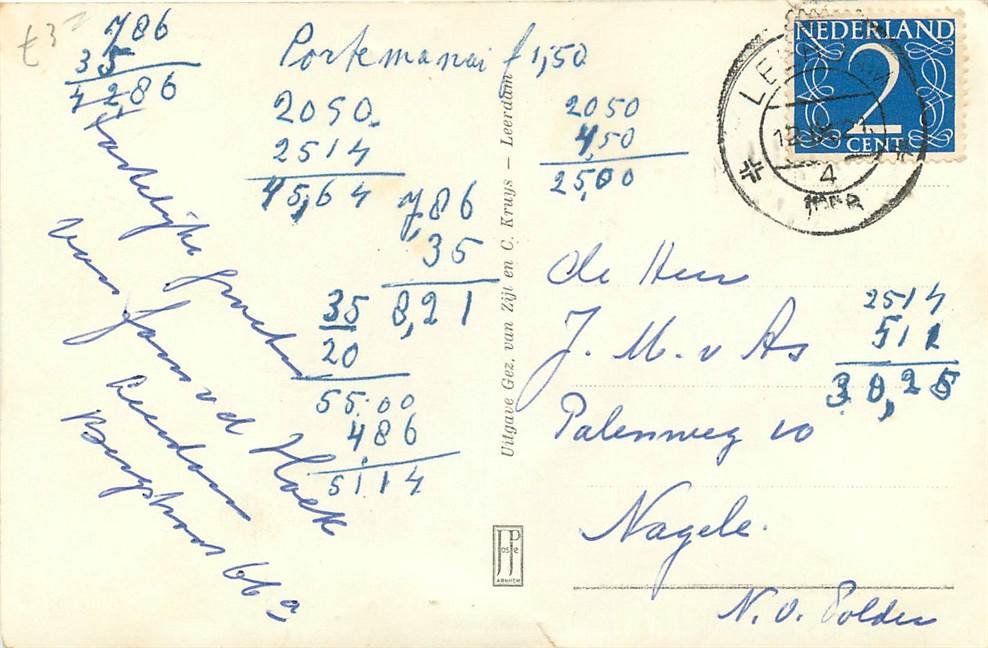 £3
786
35
4286
Hartelijke groeten
van Jan v d Hoek
Leerdam
Bergstraat 66a
Portemanai f 1,50
2050
2514
45,64
2050
4,50
25,00
7,86
35
8,21
35
20
55.00
486
5114
Uitgave Gez. van Zijl en C. Kruys – Leerdam
JosPé
ARNHEM
NEDERLAND
2
CENT
LEERDAM
4
de Heer
J. M. v As
Palenweg 10
Nagele.
N. O. Polder
2514
511
30,25